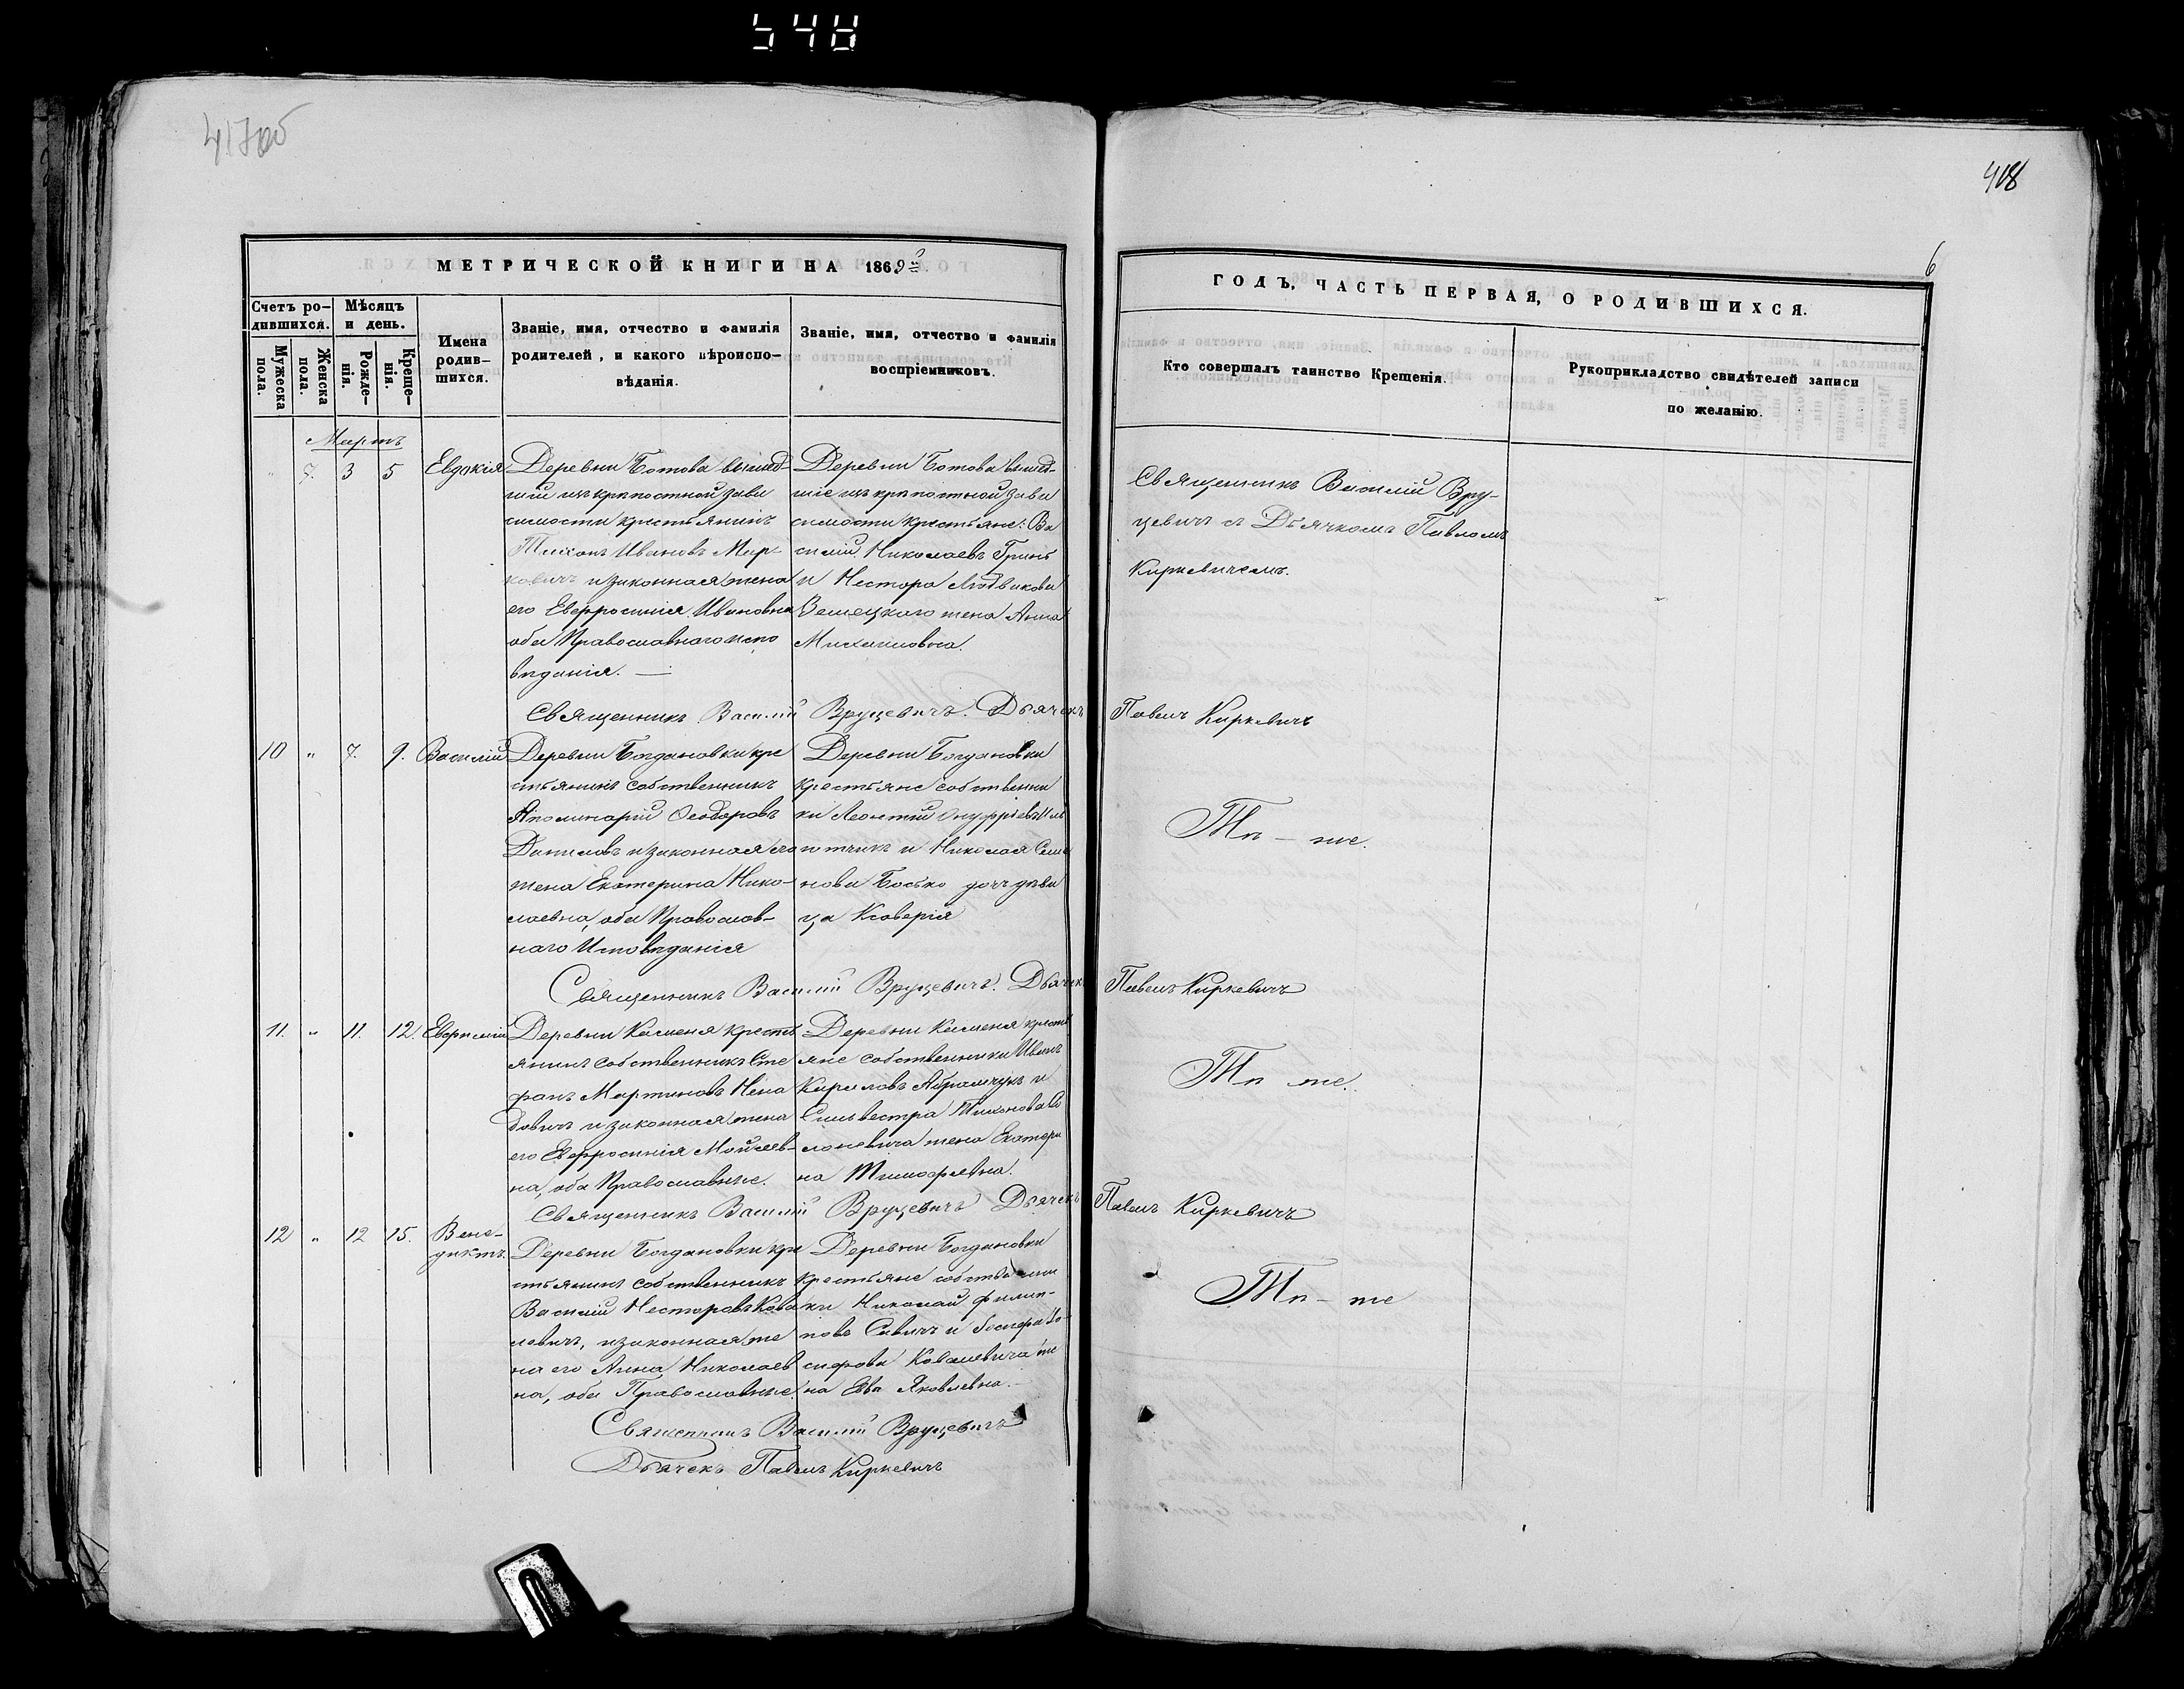 548
417об
418
6
МЕТРИЧЕСКОЙ КНИГИ НА 1869й
ГОДЪ, ЧАСТЬ ПЕРВАЯ, О РОДИВШИХСЯ.
Счетъ ро-
дившихся.
Мужеска пола.
Женска пола.
Мѣсяцъ
и день.
Рожде-
нія.
Креще-
нія.
Имена
родив-
шихся.
Званіе, имя, отчество и фамилія
родителей, и какого вѣроиспо-
вѣданія.
Званіе, имя, отчество и фамилія
воспріемниковъ.
Кто совершалъ таинство Крещенія.
Рукоприкладство свидѣтелей записи
по желанію.
Мартъ
" 7. 3 5 Евдокія
Деревни Ботова вышед-
шій изъ крѣпостной зави
симости крестьянинъ
Тихонъ Ивановъ Мар-
ковичъ и законная жена
его Евфросинія Ивановна
оба Православнаго испо
вѣданія.
Деревни Ботова вышед-
шіе изъ крѣпостной зави
симости крестьяне: Ва
силій Николаевъ Гринь
и Нестора Людвикова
жена Анна
Михаиловна.
Священникъ Василій Вру-
цевичъ съ Дьячкомъ Павломъ
Киркевичемъ.
Священникъ Василій Вруцевичъ. Дьячекъ Павелъ Киркевичъ
10 " 7. 9. Василій
Деревни Богдановки кре
стьянинъ собственникъ
Аполинарій Ѳеодоровъ
Даниловъ и законная его
жена Екатерина Нико-
лаевна, оба Православ-
наго Исповѣданія
Деревни Богдановки
крестьяне собственни
ки Леонтій Онуфріевъ
и Николая Семе
нова Босько дочь дѣви
ца Ксаверія
Тѣ-же.
Священникъ Василій Вруцевичъ. Дьячекъ Павелъ Киркевичъ
11. " 11. 12. Евфимій
Деревни Каменя кресть
янинъ собственникъ Сте
фанъ Мартиновъ Нена
довичъ и законная жена
его Евфросинія Мойсеев-
на, оба Православные.
Деревни Каменя кресть
яне собственники Иванъ
Кириловъ Абрамчукъ и
Сильвестра Тихонова Со
лоневича жена Екатери
на Тимофеевна.
Тѣ же.
Священникъ Василій Вруцевичъ Дьячекъ Павелъ Киркевичъ
12 " 12 15. Вене-
диктъ.
Деревни Богдановки кре
стьянинъ собственникъ
Василій Несторовъ Кова
левичъ, и законная же
на его Анна Николаев
на, оба Православные.
Деревни Богдановки
крестьяне собственни
ки Николай Филип-
повъ Савичъ и Іо-
сифова Ковалевича же
на Ева Яковлевна.
Тѣ-же
Священникъ Василій Вруцевичъ
Дьячекъ Павелъ Киркевичъ